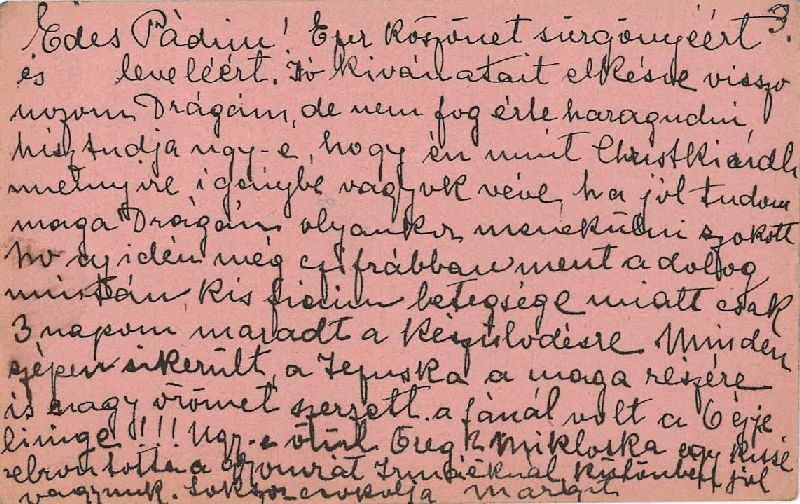 Édes Pádim! Ezer köszönet sürgönyéért 3.
és leveléért. Jó kivánatait elkésve viszo
nozom Drágám, de nem fog érte haragudni,
hisz tudja ugy-e, hogy én mint Christkindl
mennyire igénybe vagyok véve, ha jól tudom
maga Drágám olyankor menekülni szokott
no az idén még czifrábban ment a dolog
mintán kis fiaim betegsége miatt csak
3 napom maradt a készülődésre. Minden
szépen sikerült, a Jézuska a maga részére
is nagy örömet szerzett. a fánál volt a
!!! Ugy-e Miklóska egy kissé
elrontotta a gyomrát különben jól
vagyunk. Sokszor csokolja Margit